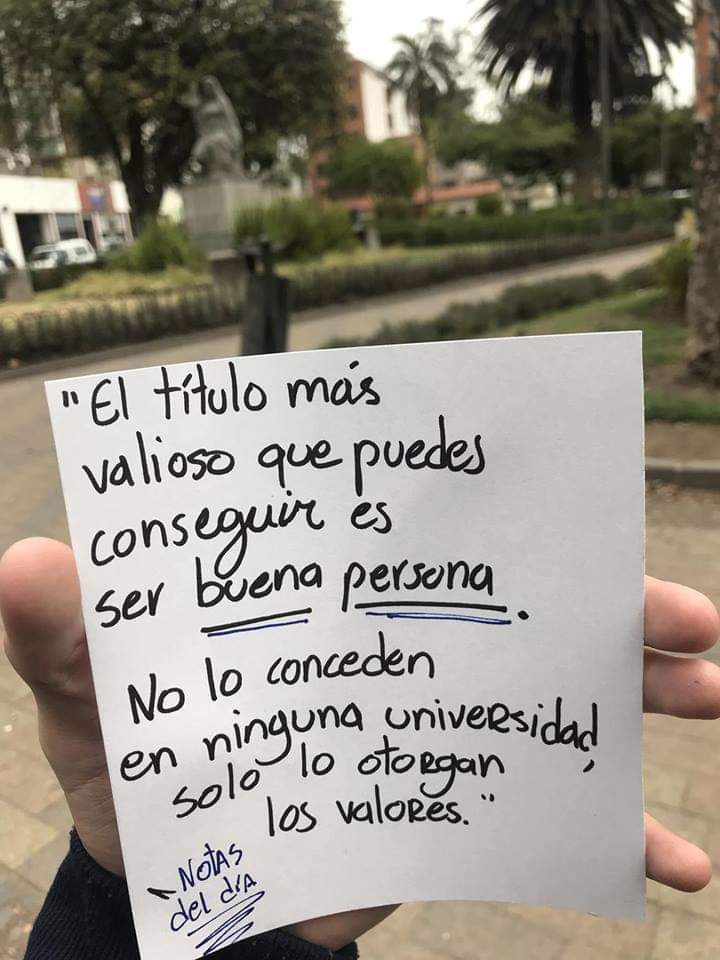 "El título más
valioso que puedes
conseguir es
ser buena persona.
No lo conceden
en ninguna universidad,
solo lo otorgan
los valores."
Notas
del día